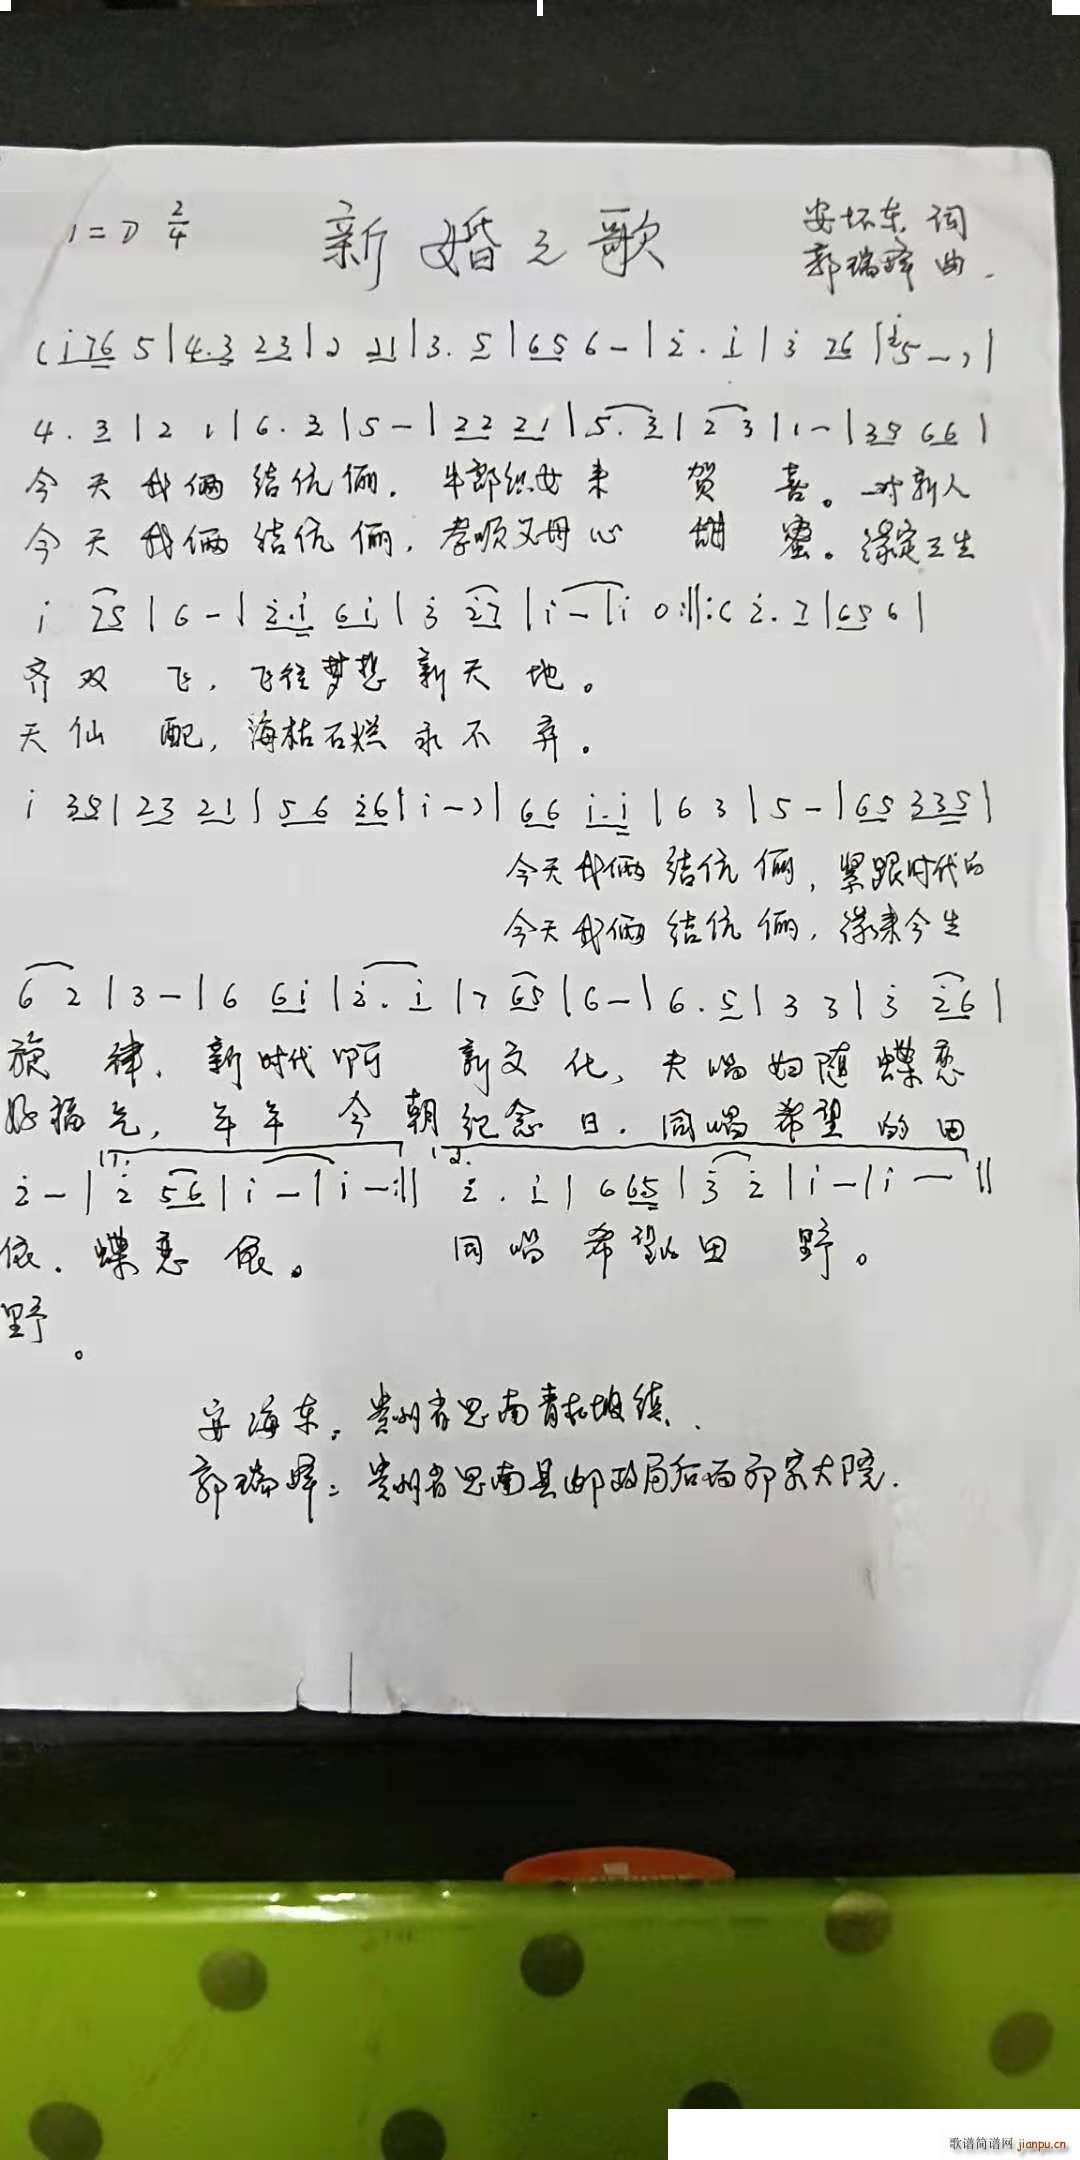 1=D 2/4 新婚之歌 安怀东 词
郭瑞峰 曲.
(i76 5|4.3 23|2 21|3. 5|656-|2. i|3 26|5-)|
4. 3|2 1|6. 3|5-|22 21|5. 3|2 3|1-|35 66|
今天我俩结伉俪. 牛郎织女来 贺 喜。一对新人
今天我俩结伉俪, 孝顺父母心 甜 蜜。缘定三生
i 25|6-|2.i 6i|3 27|i-|i 0:||:(2. 7|656|
齐双 飞, 飞往梦想新天地。
天仙 配, 海枯石烂永不弃。
i 35|23 21|56 26|i-)|66 i.i|6 3|5-|65 335|
今天我俩结伉俪, 紧跟时代的
今天我俩结伉俪, 缘来今生
6 2|3-|6 6i|2. i|7 65|6-|6. 5|3 3|3 26|
旋律. 新时代啊 新文化, 夫唱妇随蝶恋
好福气, 年年今朝纪念日. 同唱希望的田
1. 2.
2-|2 56|i-|i-:|| 2. i|6 65|3 2|i-|i-||
依. 蝶恋依。 同唱希望的田 野。
野。
安海东: 贵州省思南青杠坡镇.
郭瑞峰: 贵州省思南县邮政局后面郭家大院.
歌谱简谱网 jianpu.cn